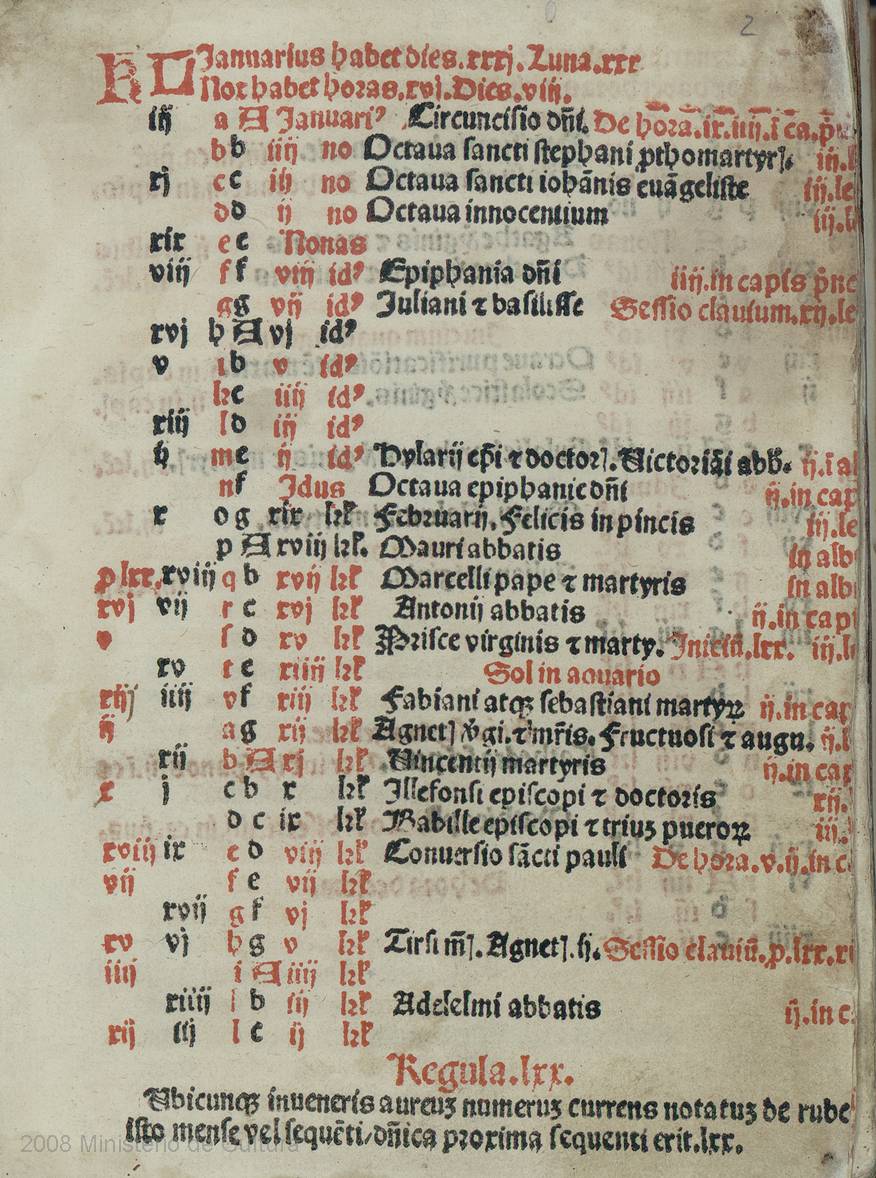 2
KL Januarius habet dies.xxxj.Luna.xxx
Nox habet horas.xvj.Dies.viij.
iij a A Januari⁹ Circuncisio dñi. De hora.ix.iiij.ī ca.
b b iiij no Octaua sancti stephani ꝓthomartyrꝭ.
xj c c iij no Octaua sancti iohānis euāgeliste iij.le
d d ij no Octaua innocentium iij.l
xix e e Nonas
viij f f viij id⁹ Epiphania dñi iiij.in capis p̄nc
g g vij id⁹ Juliani ⁊ basilisse Sessio clauium.xij.le
xvj h A vj id⁹
v i b v id⁹
k c iiij id⁹
xiij l d iij id⁹
ij m e ij id⁹ Hylarij ep̄i ⁊ doctorꝭ. Uictoriāi abb̄. ij.ī al
n f Idus Octaua epiphanie dñi ij.in cap
x o g xix kł Februarij. Felicis in pincis iij.le
p A xviij kł. Mauri abbatis in alb
p lxx. xviij q b xvij kł Marcelli pape ⁊ martyris in alb
xvj vij r c xvj kł Antonij abbatis ij.in capi
v s d xv kł Prisce virginis ⁊ marty. Iniciū.lxx. iij.l
xv t e xiiij kł Sol in aquario
xiij iiij v f xiij kł Fabiani atqꝫ sebastiani martyꝝ ij.in cap
ij a g xij kł Agnetꝭ v̄gi.⁊ mr̄is. Fructuosi ⁊ augu. ij.l
xij b A xj kł Uincentij martyris ij.in cap
x j c b x kł Illefonsi episcopi ⁊ doctoris xij.
d c ix kł Babille episcopi ⁊ triuꝫ pueroꝝ iij.
xviij ix e d viij kł Conuersio sācti pauli De hora.v.ij.in c
vij f e vij kł
xvij g f vj kł
xv vj h g v kł Tirsi m̄ꝭ. Agnetꝭ.ij. Sessio clauiū.p.lxx.xi
iiij i A iiij kł
xiiij k b iij kł Adelelmi abbatis ij.in c
xij iij l c ij kł
Regula.lxx.
Ubicunqꝫ inueneris aureuꝫ numeruꝫ currens notatuꝫ de rube
isto mense vel sequēti/dñica proxima sequenti erit.lxx.
2008 Ministerio de Cultura